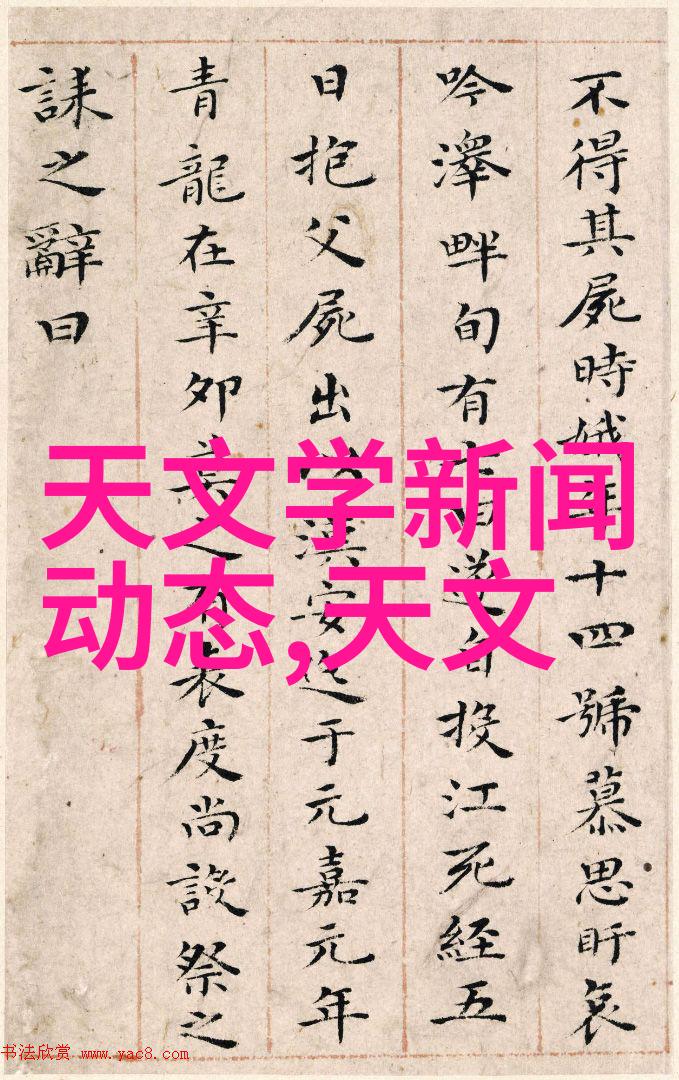 不得其屍時娥年十四號慕思盱哀
吟澤畔旬有遂自投江死經五
日抱父屍出漢安迄于元嘉元年
青龍在辛卯莫之有表度尚設祭之
誄之辭曰
天文学新闻
动态,天文
书法欣赏 www.yac8.com